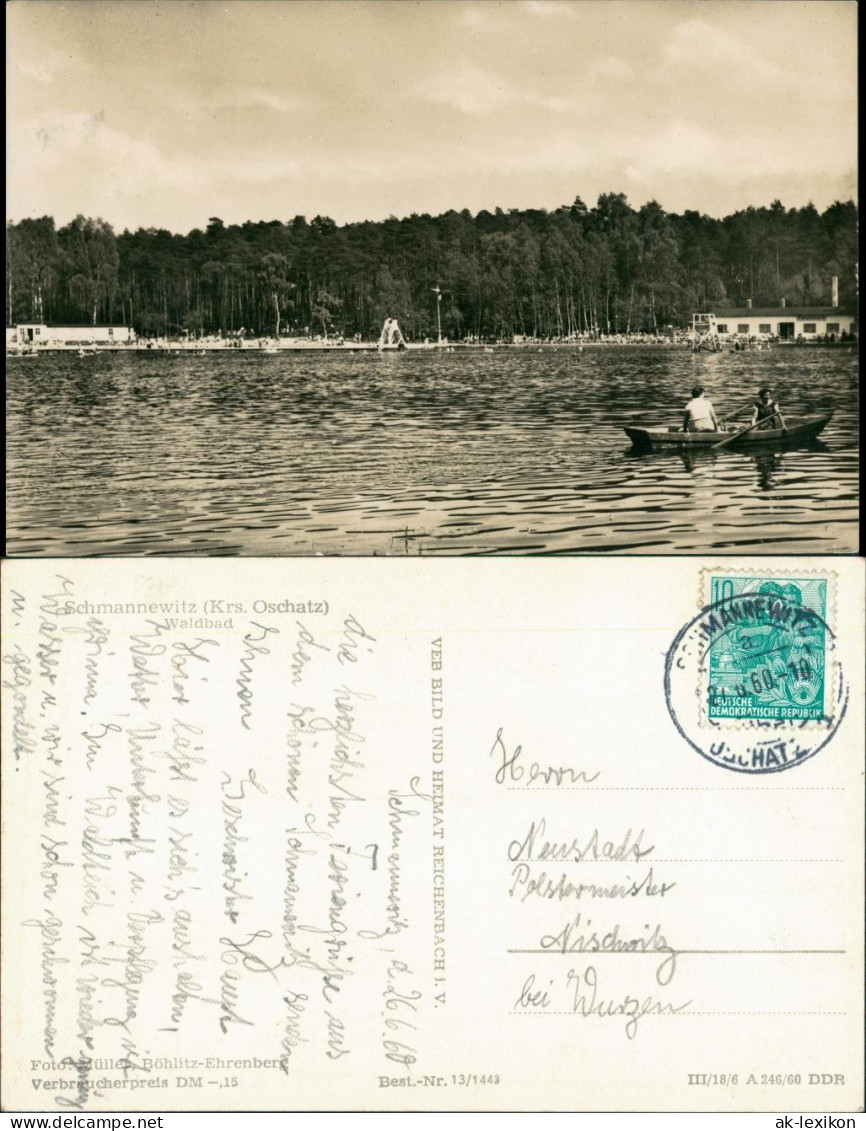 Schmannewitz (Krs. Oschatz)
Waldbad
Schmannewitz, d. 26.6.60
die herzlichsten Feriengrüße aus
dem schönen Schmannewitz senden
Ihnen Geschwister
Hier läßt es sich's aushalten,
Wetter, Unterkunft u. Verpflegung ist
prima. Im Waldteich ist wieder genug
Wasser u. wir sind schon geschwommen
u. gegondelt.
Foto: Müller, Böhlitz-Ehrenberg
Verbraucherpreis DM -,15
VEB BILD UND HEIMAT REICHENBACH i. V.
Best.-Nr. 13/1443
10
DEUTSCHE
DEMOKRATISCHE REPUBLIK
SCHMANNEWITZ
a
60.-10
OSCHATZ
Herrn
Neustadt
Polstermeister
Nischwitz
bei Wurzen
III/18/6 A 246/60 DDR
ak-lexikon